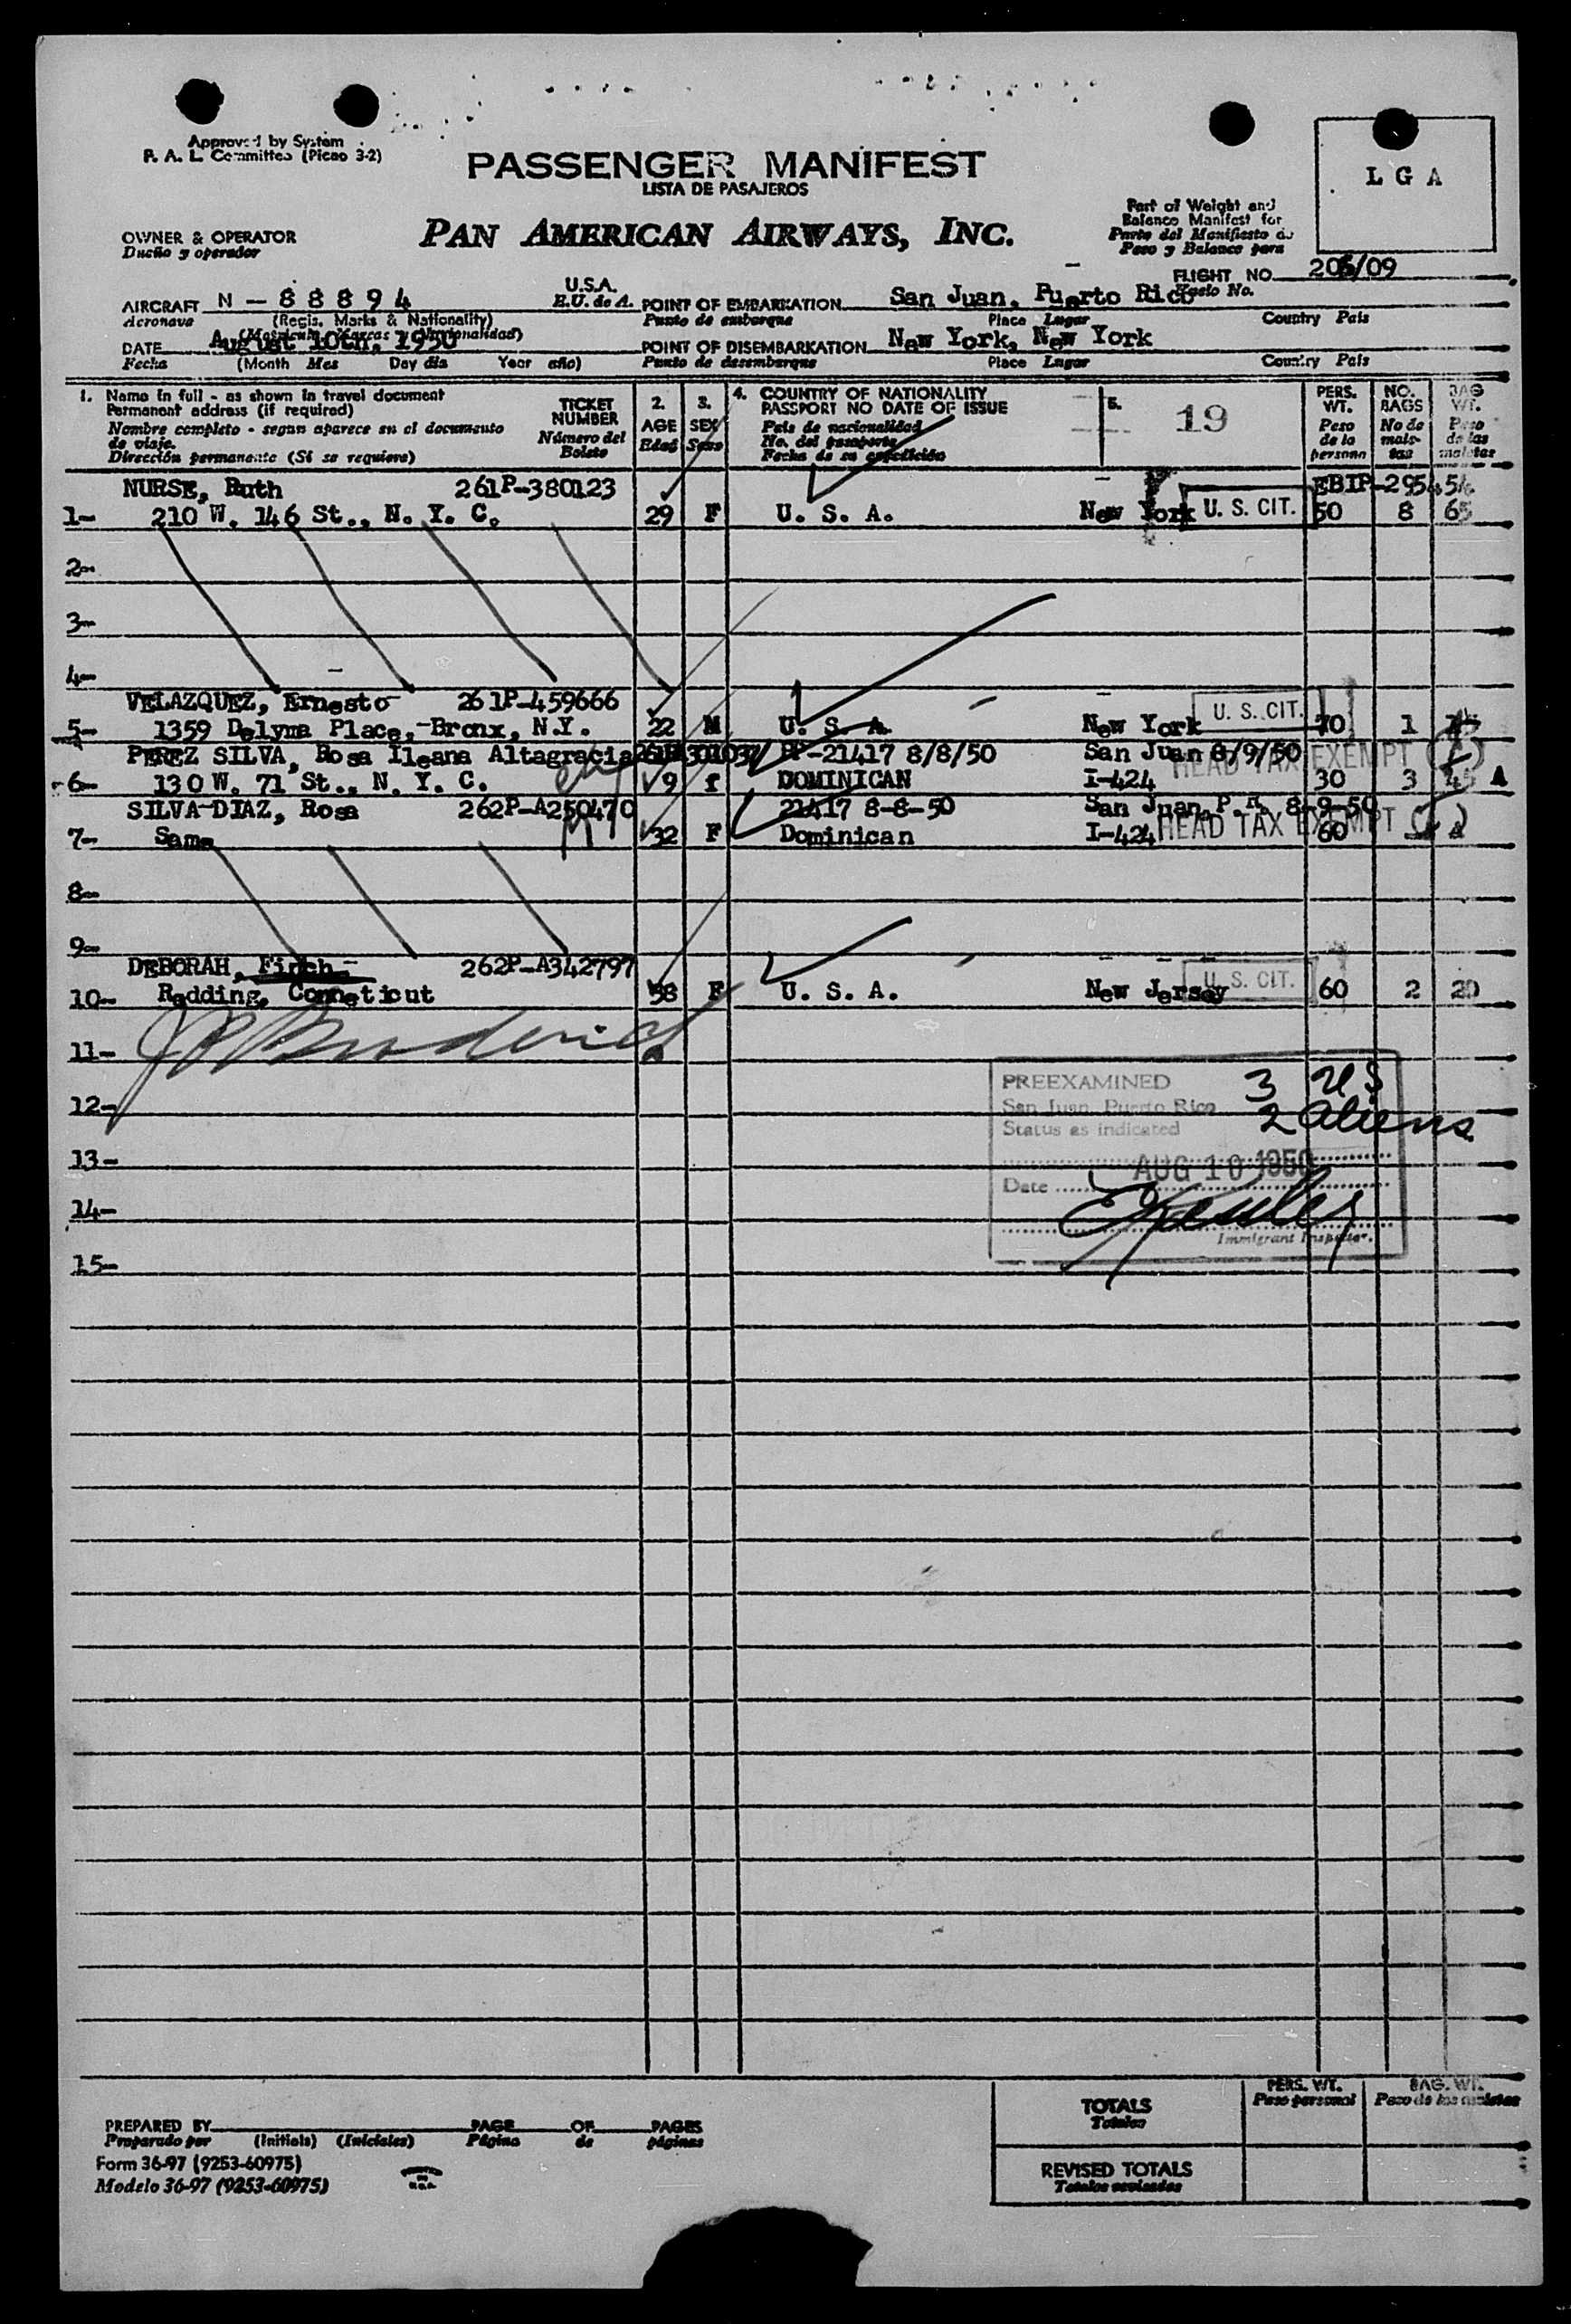 Approved by System
P. A. L. Committee (Picao 3-2)
PASSENGER MANIFEST
LISTA DE PASAJEROS
L G A
Part of Weight and
Balance Manifest for
Parte del Manifiesto de
Peso y Balance para
OWNER & OPERATOR
Dueño y operador
PAN AMERICAN AIRWAYS, INC.
FLIGHT NO. 206/09
Vuelo No.
AIRCRAFT N - 88894 U.S.A.
Aeronave (Regis. Marks & Nationality) E.U. de A.
POINT OF EMBARKATION San Juan, Puerto Rico
Punto de embarque Place Lugar Country Pais
DATE August 10th, 1950
Fecha (Month Mes Day dia Year año)
POINT OF DISEMBARKATION New York, New York
Punto de desembarque Place Lugar Country Pais
1. Name in full - as shown in travel document
Permanent address (if required)
Nombre completo - segun aparece en el documento
de viaje.
Dirección permanente (Si se requiere)
TICKET
NUMBER
Número del
Boleto
2.
AGE
Edad
3.
SEX
Sexo
4. COUNTRY OF NATIONALITY
PASSPORT NO DATE OF ISSUE
Pais de nacionalidad
No. del pasaporte
Fecha de su expedición
5. 19
PERS.
WT.
Peso
de la
persona
NO.
BAGS
No de
male-
tas
BAG
WT.
Peso
de las
maletas
NURSE, Ruth 261P-380123 EBIP-295454
1- 210 W. 146 St., N. Y. C. 29 F U. S. A. New York U. S. CIT. 50 8 65
2-
3-
4-
VELAZQUEZ, Ernesto 261P-459666
5- 1359 Delyma Place, Bronx, N.Y. 22 M U. S. A. New York U. S. CIT. 70 1
PEREZ SILVA, Rosa Ileana Altagracia PP-21417 8/8/50 San Juan 8/9/50 HEAD TAX EXEMPT
6- 130 W. 71 St., N. Y. C. 9 f DOMINICAN I-424 30 3 A
SILVA-DIAZ, Rosa 262P-A250470 21417 8-8-50 San Juan, P.R. 8-9-50
7- Same 32 F Dominican I-424 HEAD TAX EXEMPT 60
8-
9-
DEBORAH, Finch 262P-A342797
10- Redding, Conneticut 58 F U. S. A. New Jersey U. S. CIT. 60 2 20
11-
12-
13-
14-
15-
PREEXAMINED 3 US
San Juan, Puerto Rico 2 aliens
Status as indicated
AUG 10 1950
Date
Immigrant Inspector.
PREPARED BY PAGE OF PAGES
Preparado por (Initials) (Iniciales) Página de páginas
Form 36-97 (9253-60975)
Modelo 36-97 (9253-60975)
PERS. WT.
Peso personal
BAG. WT.
Peso de las maletas
TOTALS
Totales
REVISED TOTALS
Totales revisados